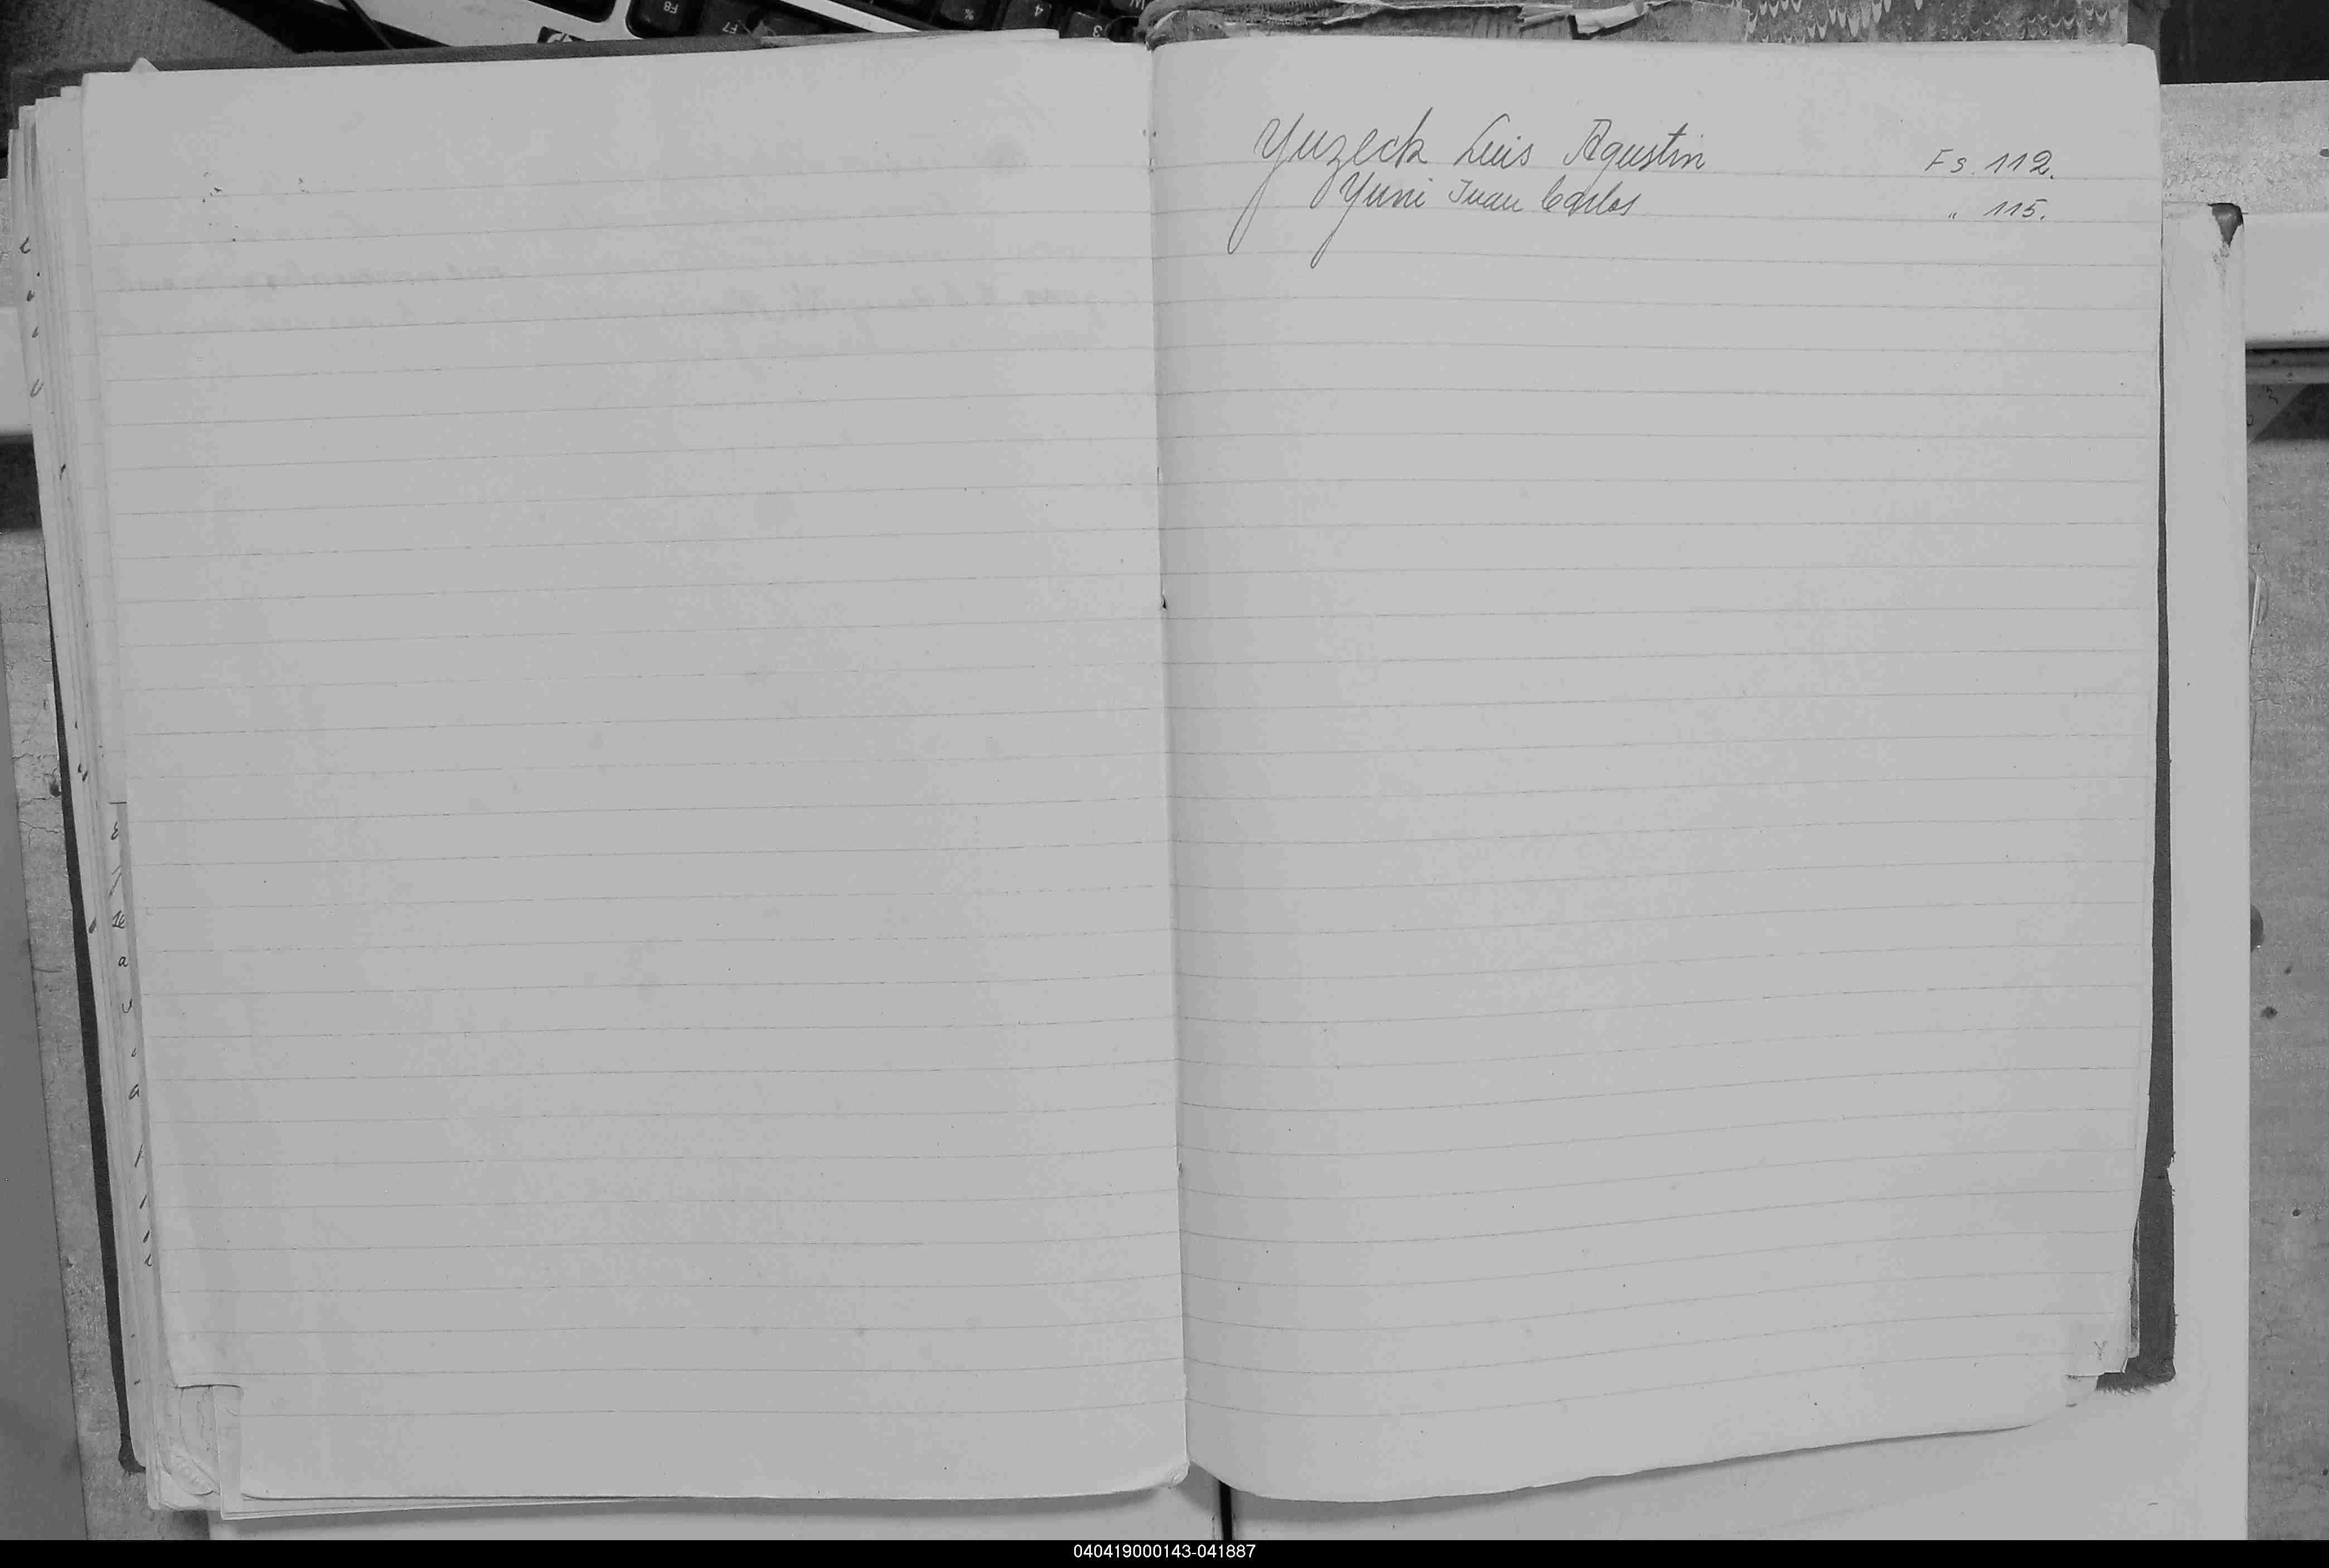 Yuzeck Luis Agustin Fs. 112.
Yuni Juan Carlos " 115.
Y
040419000143-041887